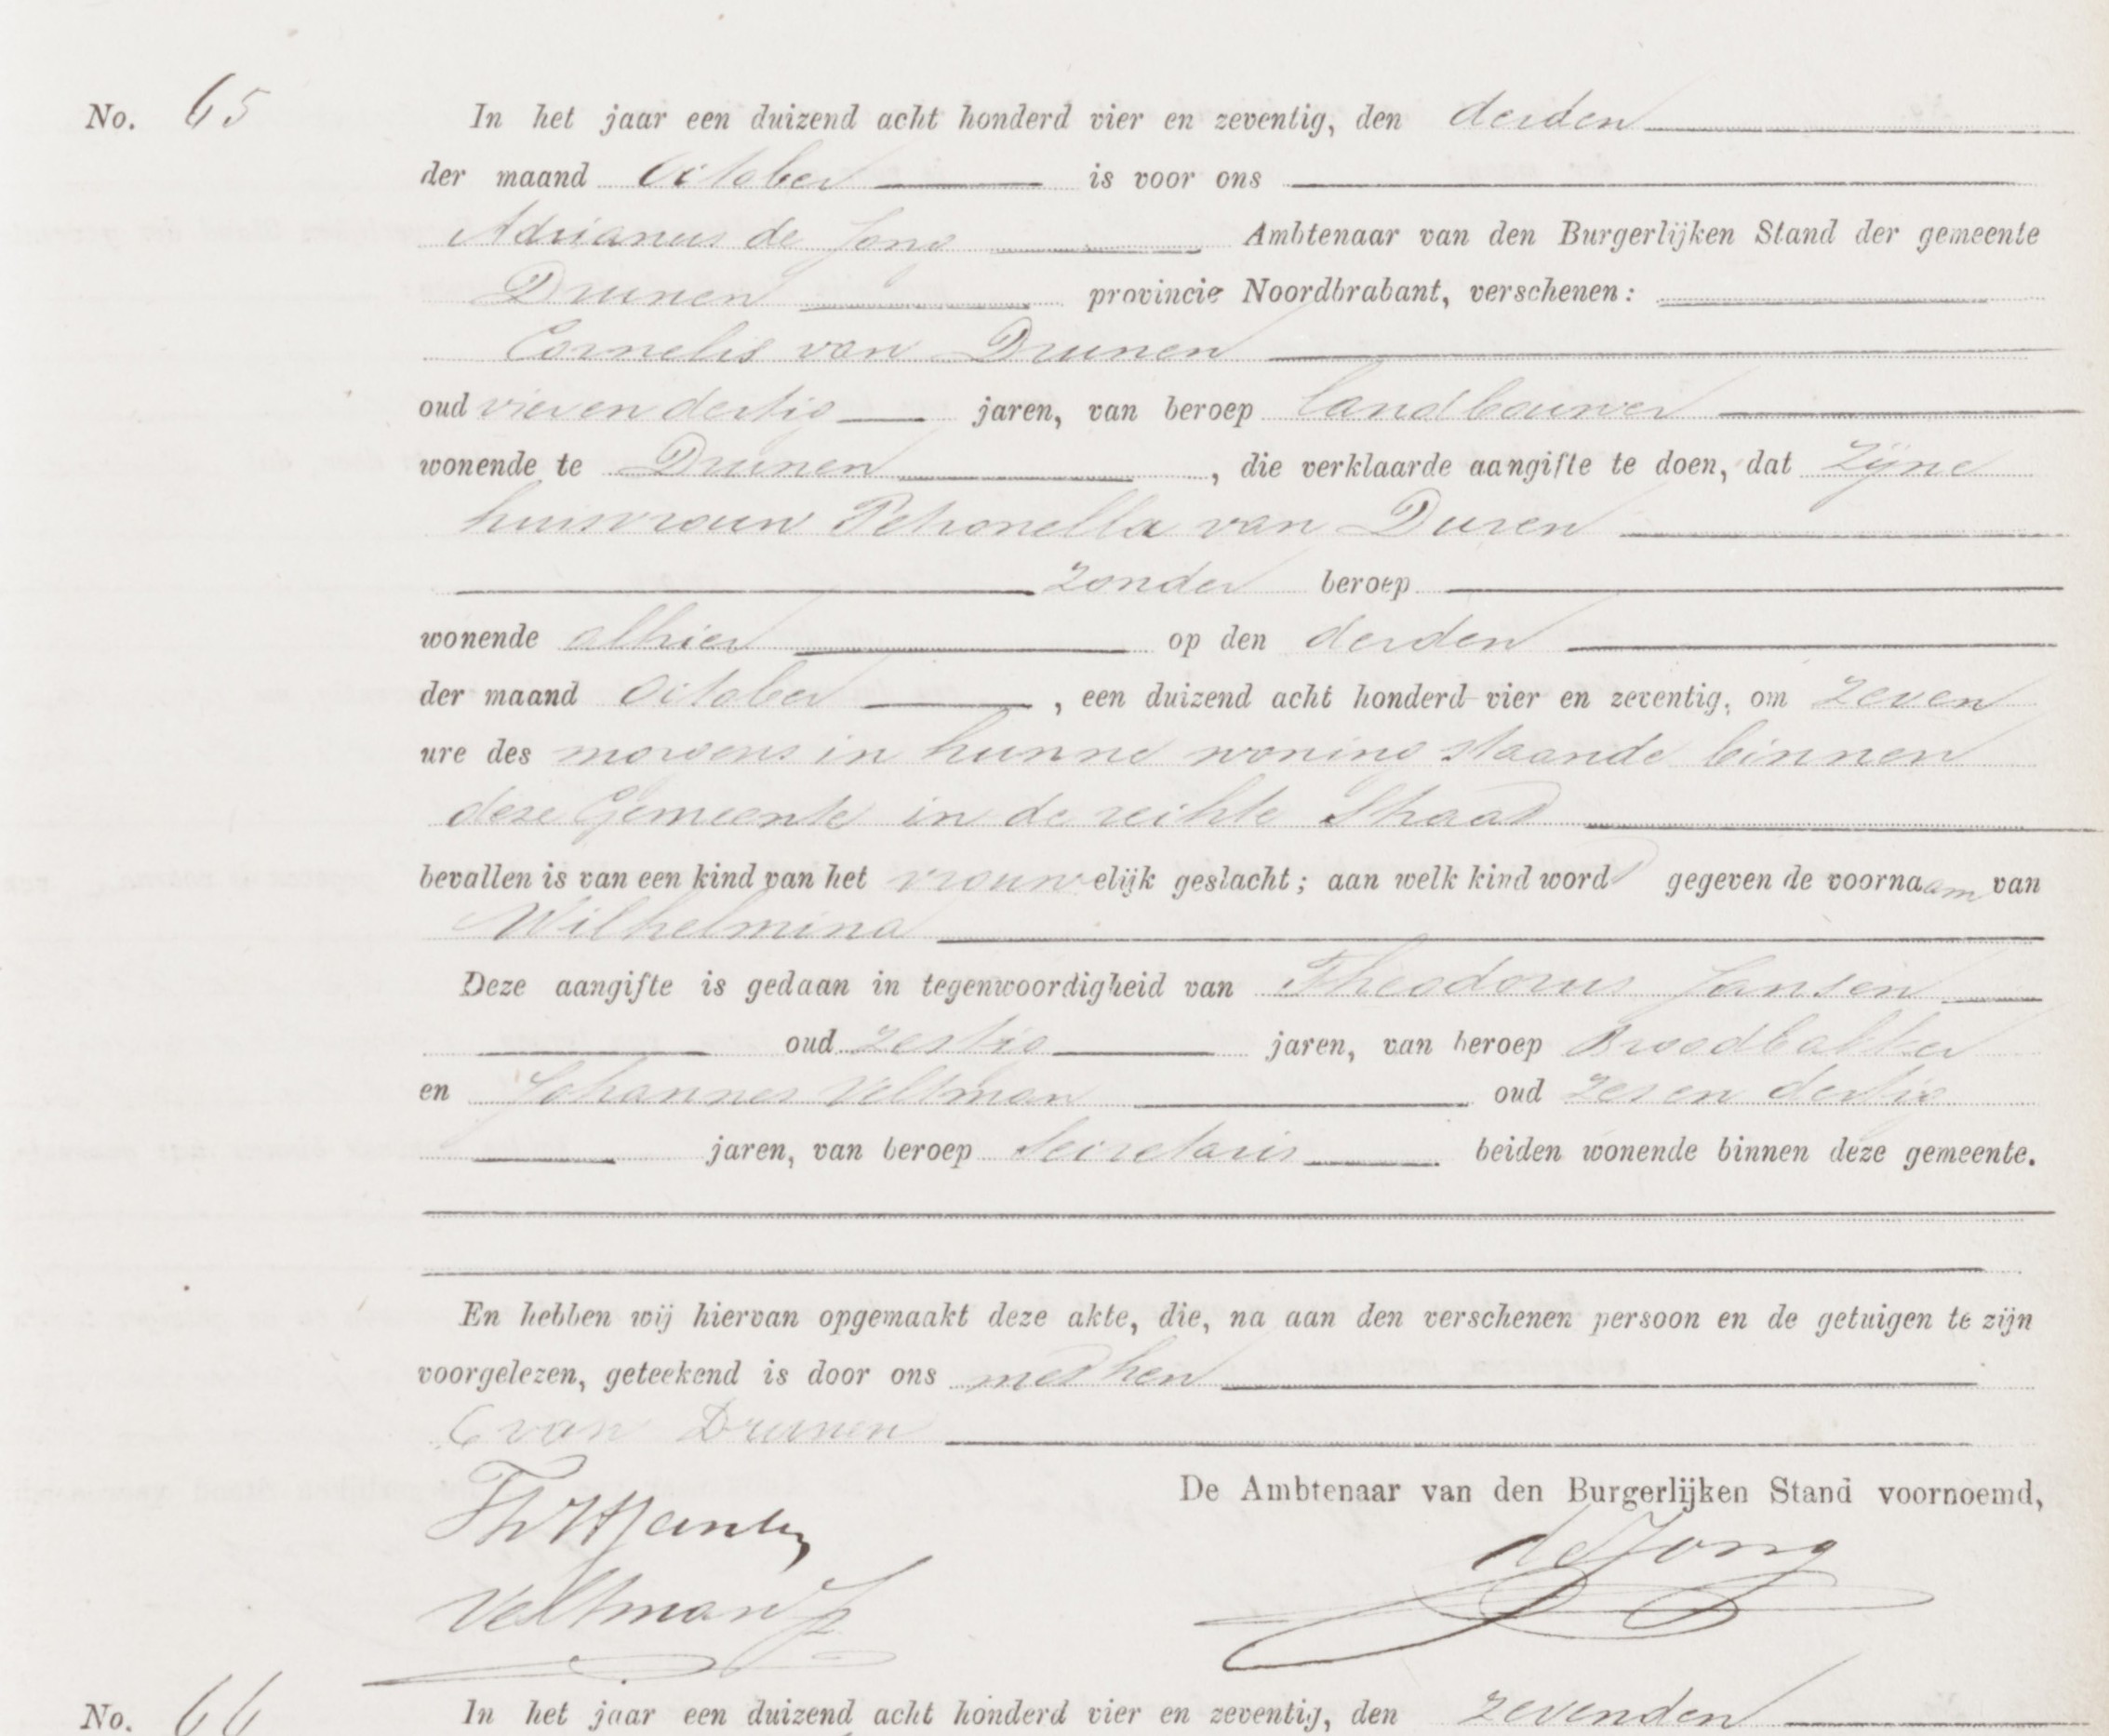 No. 65 In het jaar een duizend acht honderd vier en zeventig, den derden
der maand October is voor ons
Adrianus de Jong Ambtenaar van den Burgerlijken Stand der gemeente
Drunen provincie Noordbrabant, verschenen:
Cornelis van Drunen
oud vier en dertig jaren, van beroep landbouwer
wonende te Drunen, die verklaarde aangifte te doen, dat zijne
huisvrouw Petronella van Duren
zonder beroep
wonende alhier op den derden
der maand October, een duizend acht honderd vier en zeventig, om zeven
ure des morgens in hunne woning staande binnen
deze Gemeente in de rechte Straat
bevallen is van een kind van het vrouwelijk geslacht; aan welk kind wordt gegeven de voornaam van
Wilhelmina
Deze aangifte is gedaan in tegenwoordigheid van Theodorus Jansen
oud zestig jaren, van beroep Broodbakker
en Johannes Veltman oud zes en dertig
jaren, van beroep Secretaris beiden wonende binnen deze gemeente.
En hebben wij hiervan opgemaakt deze akte, die, na aan den verschenen persoon en de getuigen te zijn
voorgelezen, geteekend is door ons met hen
C van Drunen
De Ambtenaar van den Burgerlijken Stand voornoemd,
Th Jansen
de Jong
Veltman
No. 66 In het jaar een duizend acht honderd vier en zeventig, den zevenden